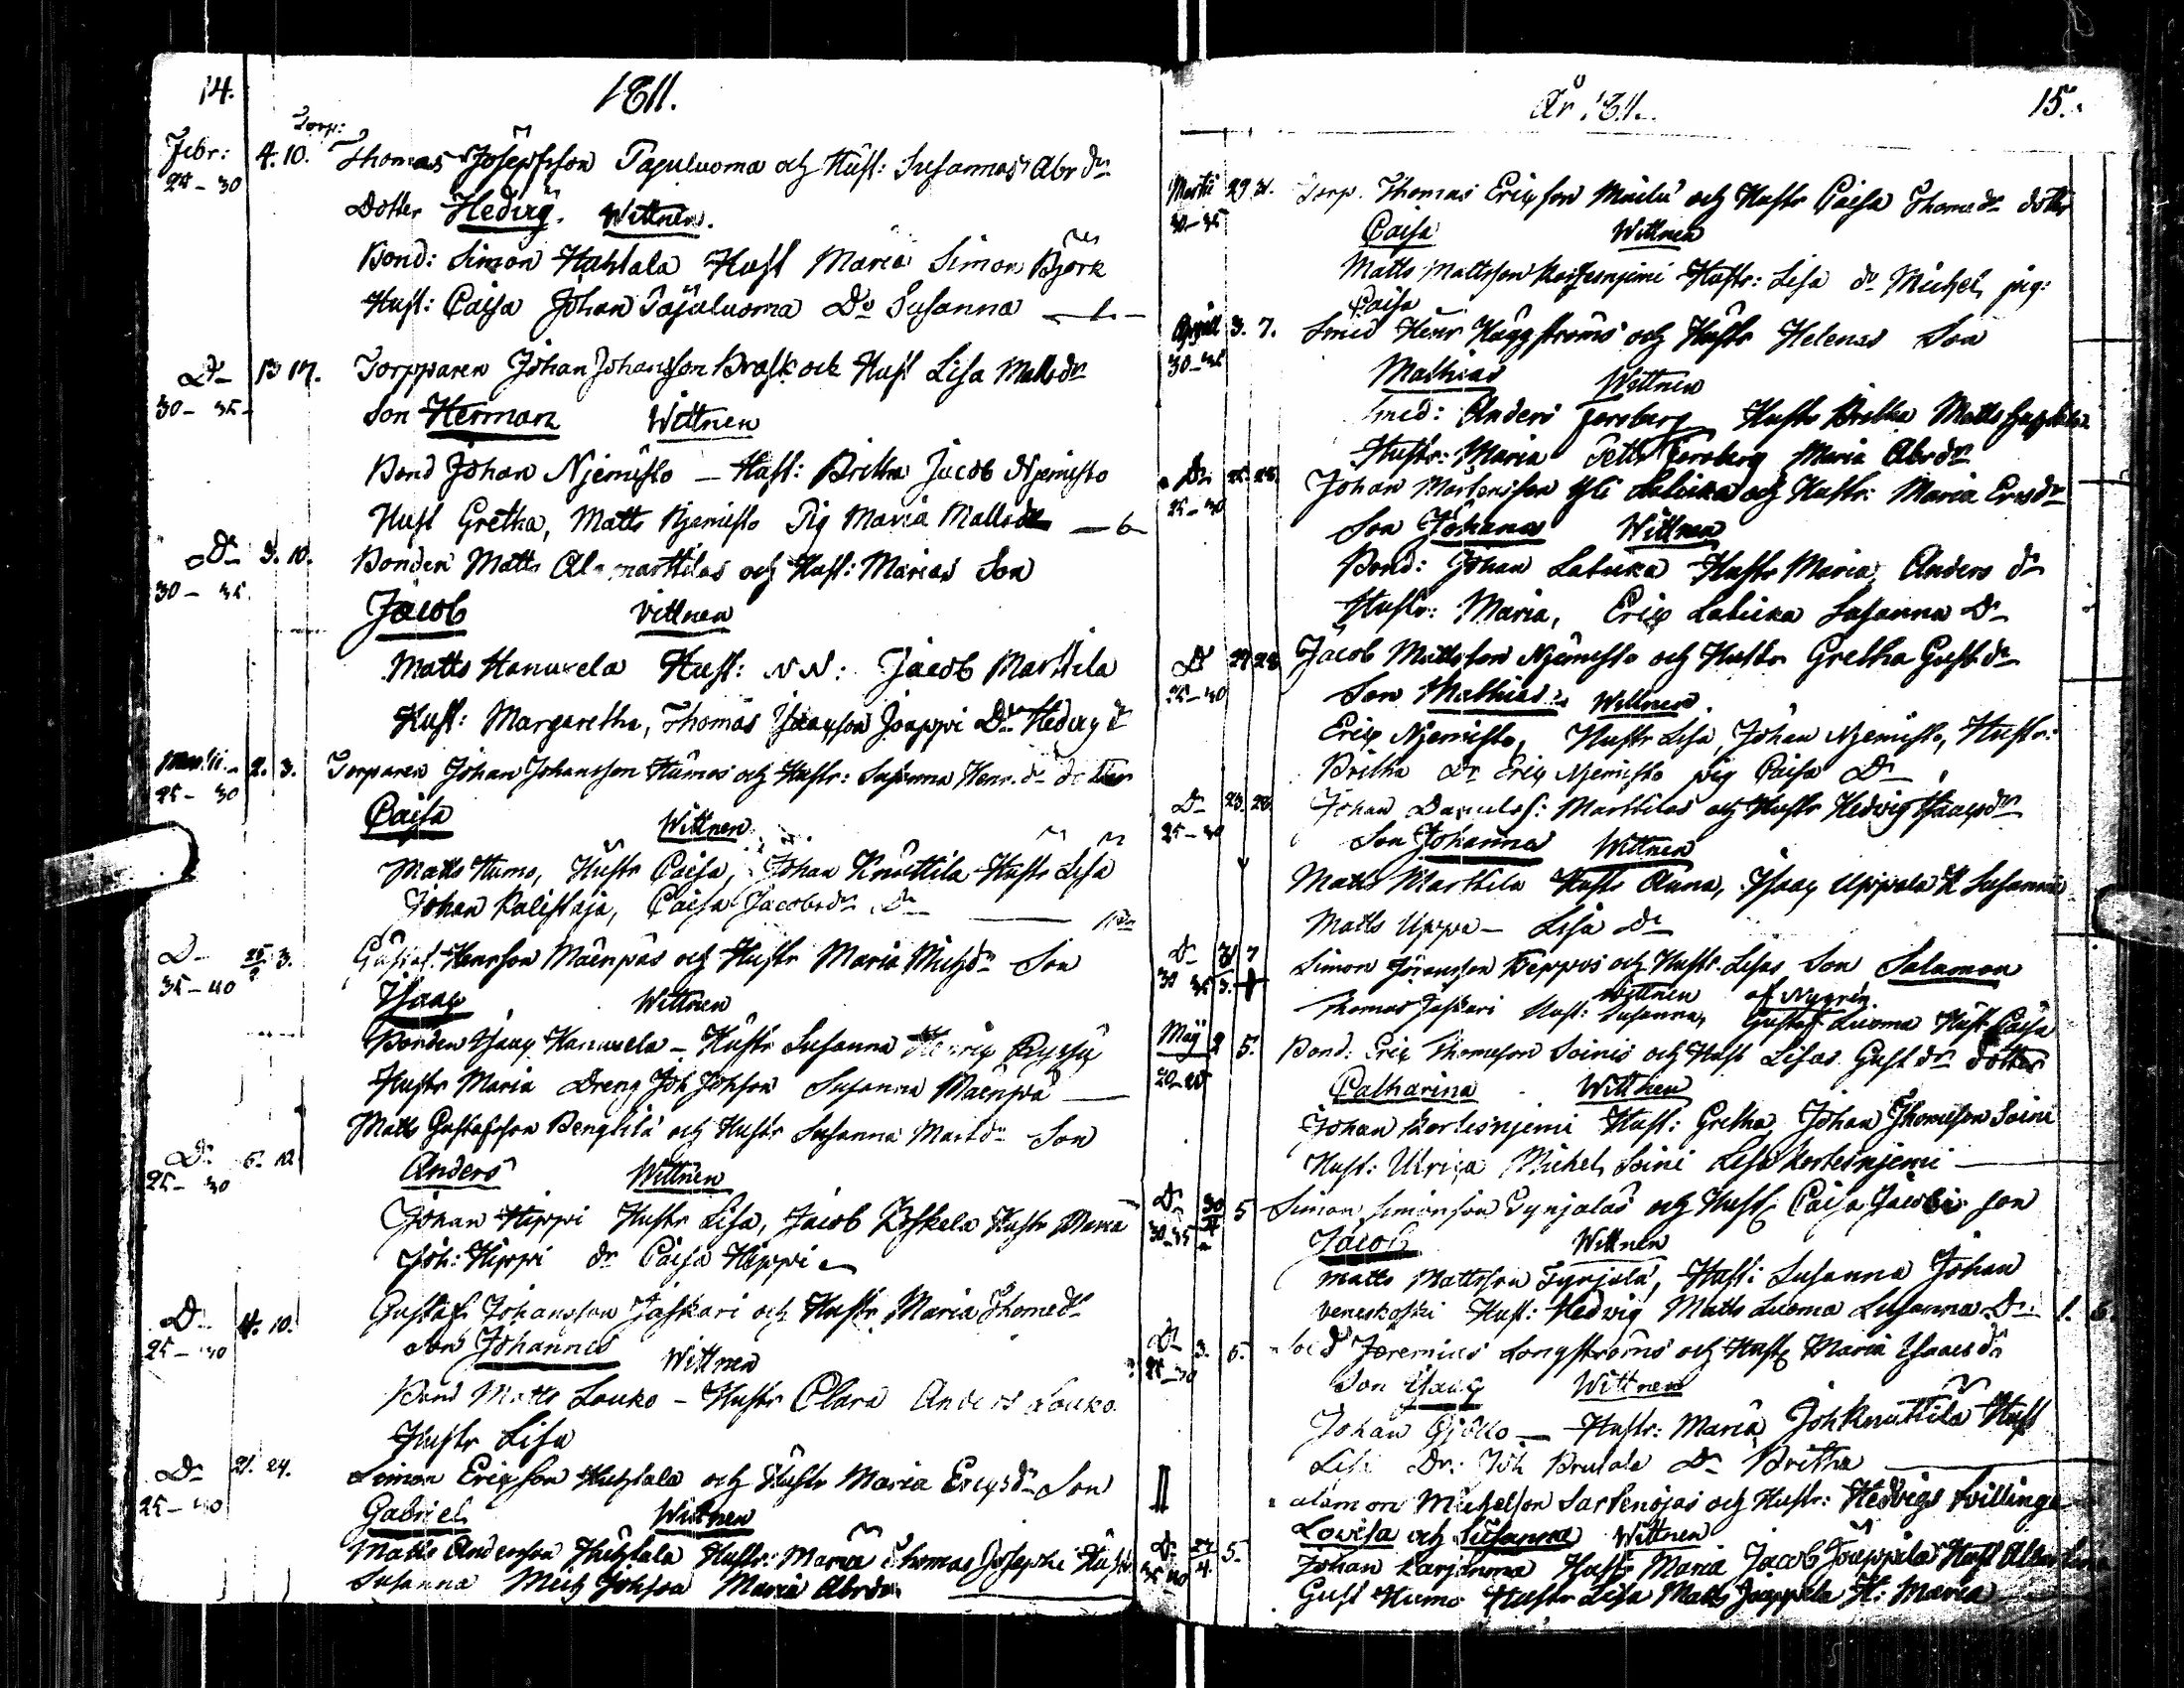 14.
1811.
Torp:
Febr: 4. 10. Thomas Josephsson Tapuluoma och Hust: Susannas Abr dr
24-30
Dotter Hedvig. Wittnen.
Bond: Simon Huhtala Hust Maria Simon Björk
Hust: Caisa Johan Dr Susanna
Dr 13 17. Torpparen Johan Johansson Brask och Hust Lisa Mattsdr
30-35
Son Herman Wittnen
Bond Johan Njemisto - Hust: Britha Jacob Njemisto
Hust Gretha, Matts Njemisto Pig Maria Mattsdr
Dr 3. 10. Bonden Matts Alamarttilas och Hust: Marias Son
30-35.
Jacob Vittnen
Matts Hanuxela Hust: N N: Jacob Marttila
Hust: Margaretha, Thomas Jouppi Dr Hedvig dr
Martii 2. 3. Torparen Johan Johansson Humos och Hustr: Susanna Henr. dr dotter
25-30
Caisa Wittnen
Matts Humo, Hustr Caisa, Johan Knuttila Hustr Lisa
Johan Kalistaja, Caisa Jacobsdr Dr
D- 25/2 3. Gustaf Henrson Mäenpäs och Hustr Maria Michdr Son
35-40
Isaac Wittnen
Bonden Isaac Hanuxela - Hustr Susanna
Hustr Maria Dreng Joh Johson Susanna Mäenpä
Matts Gustafsson Bengtilä och Hustr Susanna Martdr Son
Dr 6. 12
25-30
Anders Wittnen
Johan Hippi Hustr Lisa, Jacob Koskela Hustr Maria
Joh: Hippi dr Caisa Hippi
Dr 4. 10. Gustaf Johansson Jaskari och Hustr Maria Thomedr
25-30
Son Johannes Wittnen
Bond Matts Louko - Hustr Clara Anders Louko
Hustr Lisa
Dr 21. 24. Simon Ericsson Huhtala och Hustr Maria Ericsdr Son
25-30
Gabriel Wittnen
Matts Andersson Huhtala Hustr: Maria Thomas Josephi Hustr
Susanna Mich Johson Maria Abrdr
År 1811.
15.
Martii 29 31. Torp. Thomas Ericsson och Hustr Caisa Thomedr dotter
30-35
Caisa Wittnen
Matts Mattsson Kortesnjemi Hustr: Lisa dr Michel, pig:
Caisa
April 3. 7. Smed Henr Häggströms och Hustr Helenas Son
30-35
Mathias Wittnen
Smed: Anders Forsberg Hustr Britha Matts
Hustr: Maria Petter Forsberg Maria Abrdr
Dr 25. 28. Johan Mårtensson Yli Laluka och Hustr: Maria Ersdr
25-30
Son Johannes Wittnen
Bond: Johan Laluka Hustr Maria, Anders dr
Hustr: Maria, Eric Laluka Susanna Dr
Dr 27 28 Jacob Mattsson Njemisto och Hustr Gretha Gustdr
25-30
Son Mathias Wittnen.
Eric Njemisto, Hustr Lisa, Johan Njemisto, Hustr:
Britha Dr Eric Njemisto pig Caisa Dr
Dr 23. 28. Johan Danielss: Marttilas och Hustr Hedvig Isaacsdr
25-30
Son Johannes Wittnen
Matts Marttila Hustr Anna, Isaac Uppala H Susanna
Matts Uppa- Lisa dr
Dr 7 Simon Göransson Seppos och Hustr. Lisas Son Salamon
30 35
Wittnen af Nygrén.
Thomas Jaskari Hust: Susanna, Gustaf Luoma Hust Caisa
Maÿ 2 5. Bond: Eric Thomeson Soinis och Hust Lisas Gustdr dotter
20-25
Catharina Wittnen
Johan Kortesnjemi Hust: Gretha, Johan Thomeson Soini
Hust: Ulrica Michel Soini Lisa Kortesnjemi
Dr 30 5 Simon Simonson Tynjalas och Hust Caisa Jacobs son
30-35
Jacob Wittnen
Matts Mattsson Tynjala, Hust: Susanna Johan
Veneskoski Hust: Hedwig Matts Luoma Susanna Dr
Dr 3. 6. Jeremias Longströms och Hust Maria Isaacsdr
25-30
Son Isaac Wittnen
Johan Gjöllo - Hustr: Maria, Joh Knuttila Hust
Lisa Dr: Joh Brutale Dr Britha
II
Salamon Michelson Sarvenojas och Hustr: Hedvigs tvillingar
Lovisa och Susanna Wittnen
Dr 27/4. 5. Johan Karjanma Hustr Maria Jacob Jouppila Hust
35 40
Gust Humo Hustr Lisa Matts Jouppila H: Maria